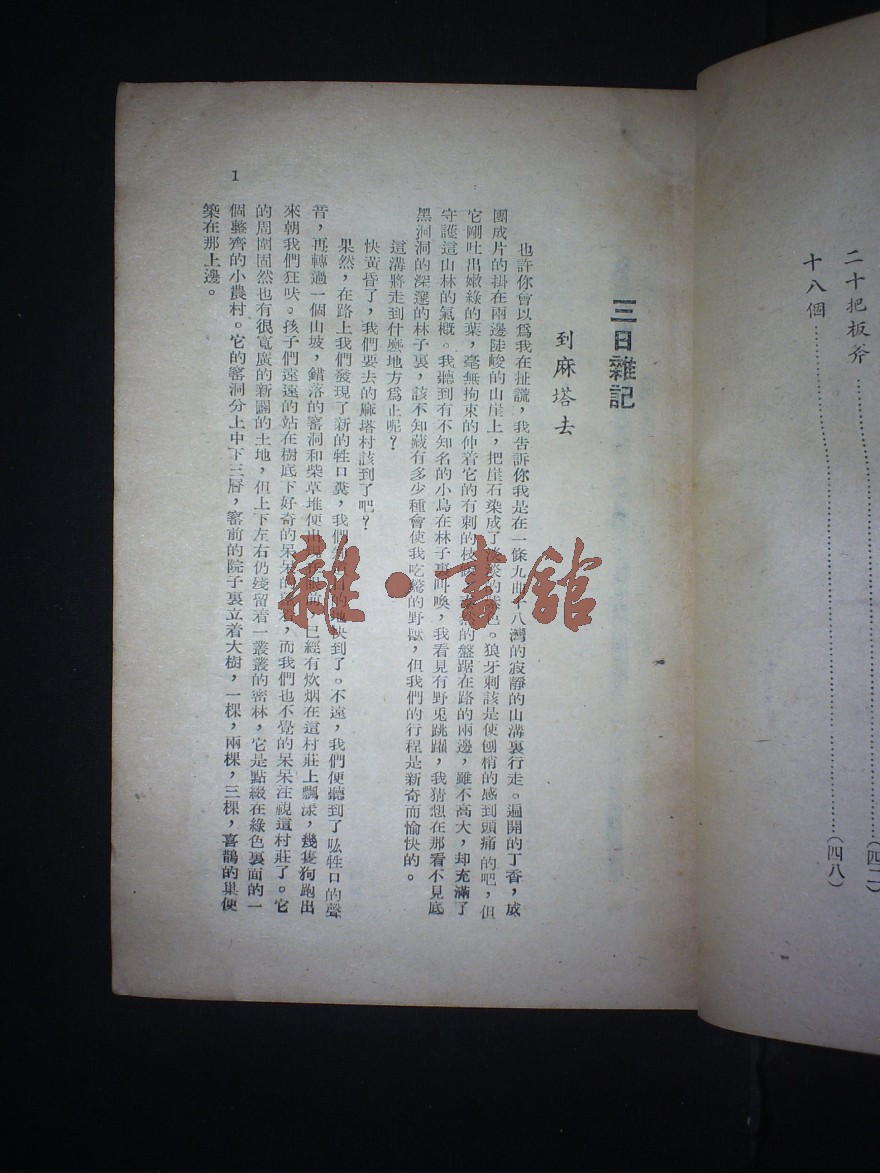 二十把板斧……(四二)
十八個……(四八)
三日雜記
到麻塔去
也許你會以爲我在扯謊,我告訴你我是在一條九曲十八灣的寂靜的山溝裏行走。遍開的丁香,成
團成片的掛在兩邊陡峻的山崖上,把崖石染成了淡淡的紫色。狼牙刺該是使刨梢的感到頭痛的吧,但
它剛吐出嫩綠的葉,毫無拘束的伸着它的有刺的枝條,泰然的盤踞在路的兩邊,雖不高大,却充滿了
守護這山林的氣概。我聽到有不知名的小鳥在林子裏叫喚,我看見有野兎跳躍,我猜想在那看不見底
黑洞洞的深邃的林子裏,該不知藏有多少種會使我吃驚的野獸,但我們的行程是新奇而愉快的。
這溝將走到什麽地方爲止呢?
快黃昏了,我們要去的麻塔村該到了吧?
果然,在路上我們發現了新的牲口糞,我們知目的地快到了。不遠,我們便聽到了吆牲口的聲
音,再轉過一個山坡,錯落的窰洞和柴草堆便出現在眼前,已經有炊烟在這村莊上飄漾,幾隻狗跑出
來朝我們狂吠。孩子們遠遠的站在樹底下好奇的呆呆的望着,而我們也不覺的呆呆注視這村莊了。它
的周圍固然也有很寬廣的新闢的土地,但上下左右仍殘留着一叢叢的密林,它是點綴在綠色裏面的一
個整齊的小農村。它的窰洞分上中下三層,窰前的院子裏立着大樹,一棵,兩棵,三棵,喜鵲的巢便
築在那上邊。
1
雜·書館